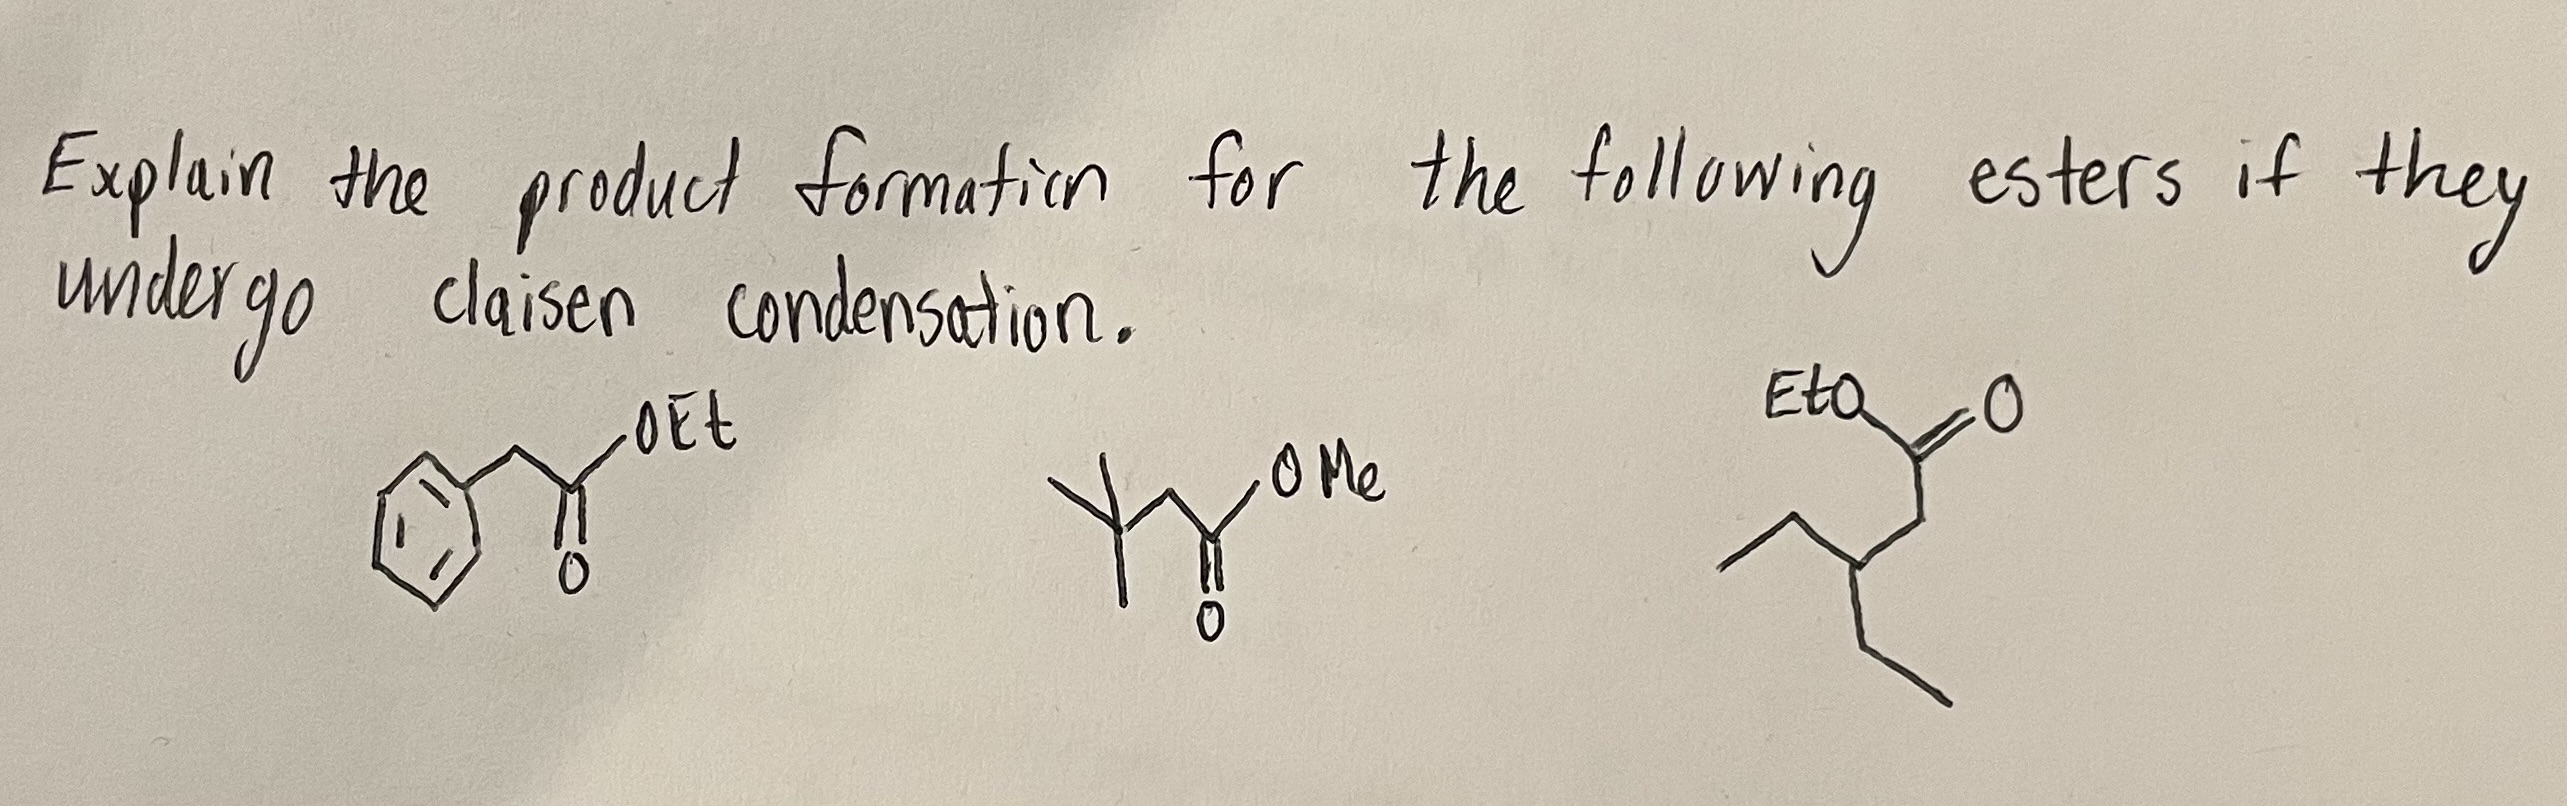 Explain the product formation for the following esters if they
undergo claisen condensation.
EtO O
OEt
OMe
O
O